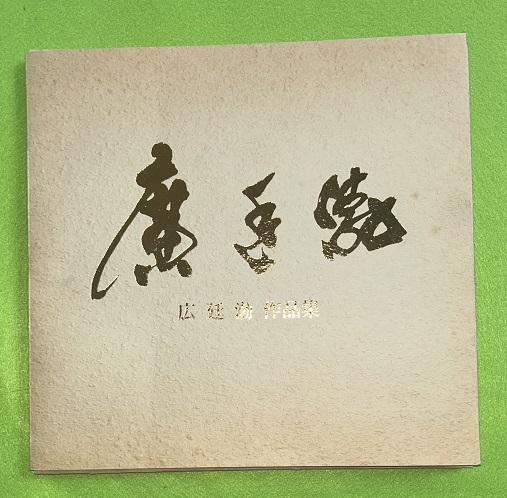 廣廷渤
広 廷 渤 作品集